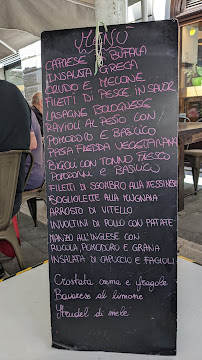 MENÙ
CAPRESE BUFALA
INSALATA GRECA
CRUDO E MELONE
FILETTI DI PESCE IN SAVOR
LASAGNE BOLOGNESE
RAVIOLI AL PESTO CON
POMODORO E BASILICO
PASTA FREDDA VEGETARIANA
BIGOLI CON TONNO FRESCO
POMODORI E BASILICO
FILETTI DI SGOMBRO ALLA MESSINESE
SOGLIOLETTE ALLA MUGNAIA
ARROSTO DI VITELLO
INVOLTINI DI POLLO CON PATATE
MANZO ALL'INGLESE CON
RUCOLA, POMODORO E GRANA
INSALATA DI CAPUCCIO E FAGIOLI
Crostata crema e fragole
Bavarese al limone
Strudel di mele